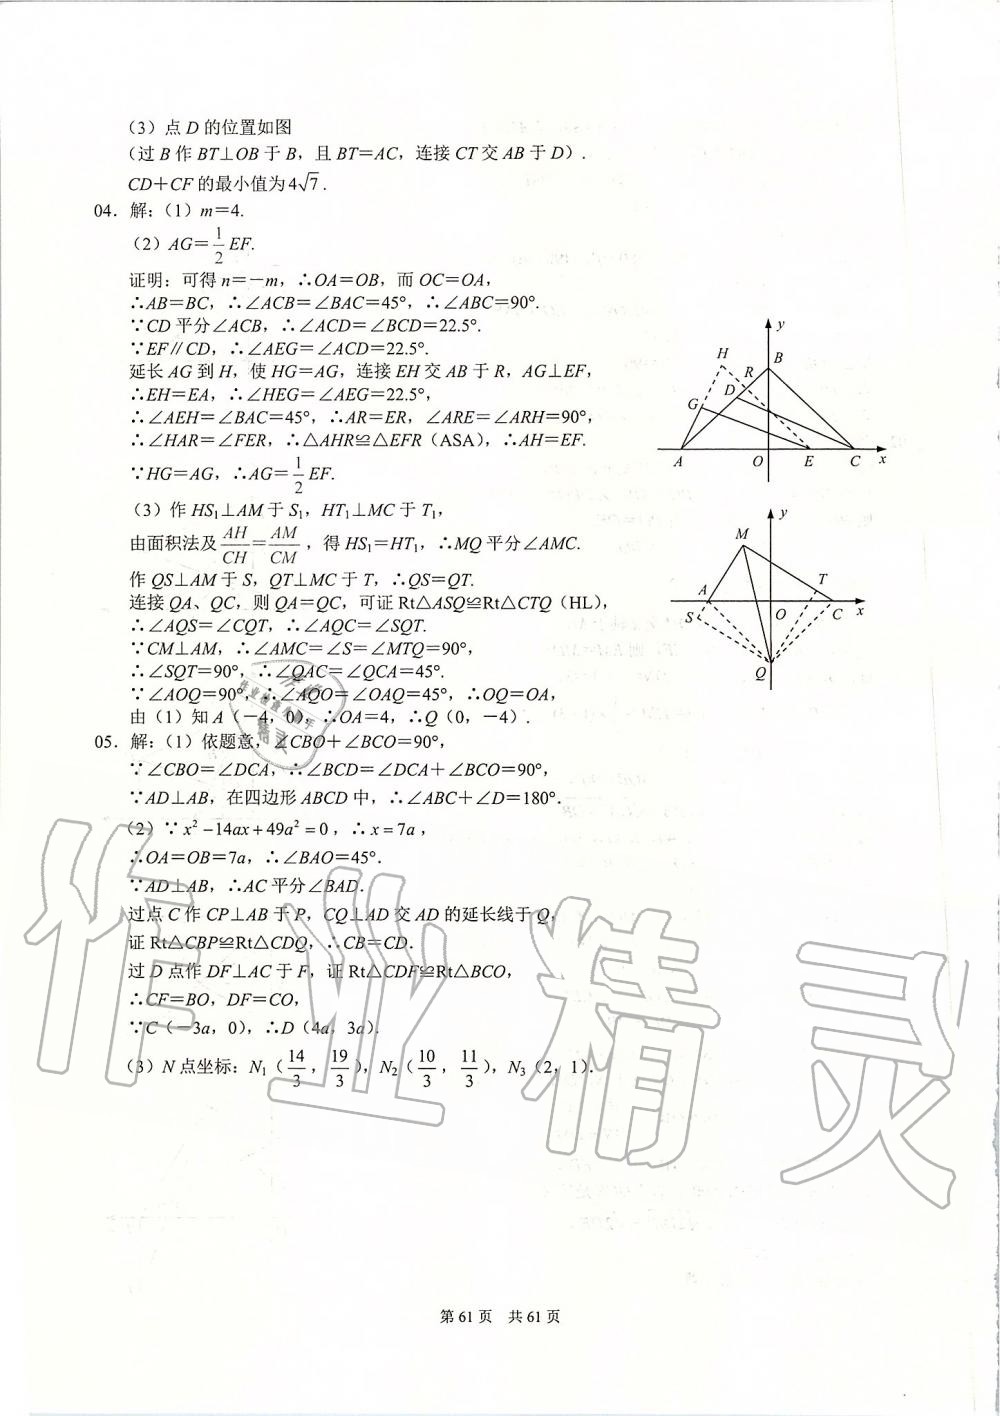 （3）点 D 的位置如图
（过 B 作 BT⊥OB 于 B，且 BT＝AC，连接 CT 交 AB 于 D）.
CD＋CF 的最小值为 4√7 .
04．解：（1）m＝4.
（2）AG＝1/2 EF.
证明：可得 n＝－m，∴OA＝OB，而 OC＝OA，
∴AB＝BC，∴∠ACB＝∠BAC＝45°，∴∠ABC＝90°.
∵CD 平分∠ACB，∴∠ACD＝∠BCD＝22.5°.
∵EF∥CD，∴∠AEG＝∠ACD＝22.5°.
延长 AG 到 H，使 HG＝AG，连接 EH 交 AB 于 R，AG⊥EF，
∴EH＝EA，∴∠HEG＝∠AEG＝22.5°，
∴∠AEH＝∠BAC＝45°，∴AR＝ER，∠ARE＝∠ARH＝90°，
∴∠HAR＝∠FER，∴△AHR≌△EFR（ASA），∴AH＝EF.
∵HG＝AG，∴AG＝1/2 EF.
（3）作 HS₁⊥AM 于 S₁，HT₁⊥MC 于 T₁，
由面积法及 AH/CH＝AM/CM，得 HS₁＝HT₁，∴MQ 平分∠AMC.
作 QS⊥AM 于 S，QT⊥MC 于 T，∴QS＝QT.
连接 QA、QC，则 QA＝QC，可证 Rt△ASQ≌Rt△CTQ（HL），
∴∠AQS＝∠CQT，∴∠AQC＝∠SQT.
∵CM⊥AM，∴∠AMC＝∠S＝∠MTQ＝90°，
∴∠SQT＝90°，∴∠QAC＝∠QCA＝45°.
∵∠AOQ＝90°，∴∠AQO＝∠OAQ＝45°，∴OQ＝OA，
由（1）知 A（－4，0），∴OA＝4，∴Q（0，－4）.
05．解：（1）依题意，∠CBO＋∠BCO＝90°，
∵∠CBO＝∠DCA，∴∠BCD＝∠DCA＋∠BCO＝90°，
∵AD⊥AB，在四边形 ABCD 中，∴∠ABC＋∠D＝180°.
（2）∵x²－14ax＋49a²＝0，∴x＝7a，
∴OA＝OB＝7a，∴∠BAO＝45°.
∵AD⊥AB，∴AC 平分∠BAD.
过点 C 作 CP⊥AB 于 P，CQ⊥AD 交 AD 的延长线于 Q，
证 Rt△CBP≌Rt△CDQ，∴CB＝CD.
过 D 点作 DF⊥AC 于 F，证 Rt△CDF≌Rt△BCO，
∴CF＝BO，DF＝CO，
∵C（－3a，0），∴D（4a，3a）.
（3）N 点坐标：N₁（14/3，19/3），N₂（10/3，11/3），N₃（2，1）.
y
H
B
R
D
G
A
O
E
C
x
y
M
T
A
S
O
C
x
Q
作业精灵
第 61 页 共 61 页